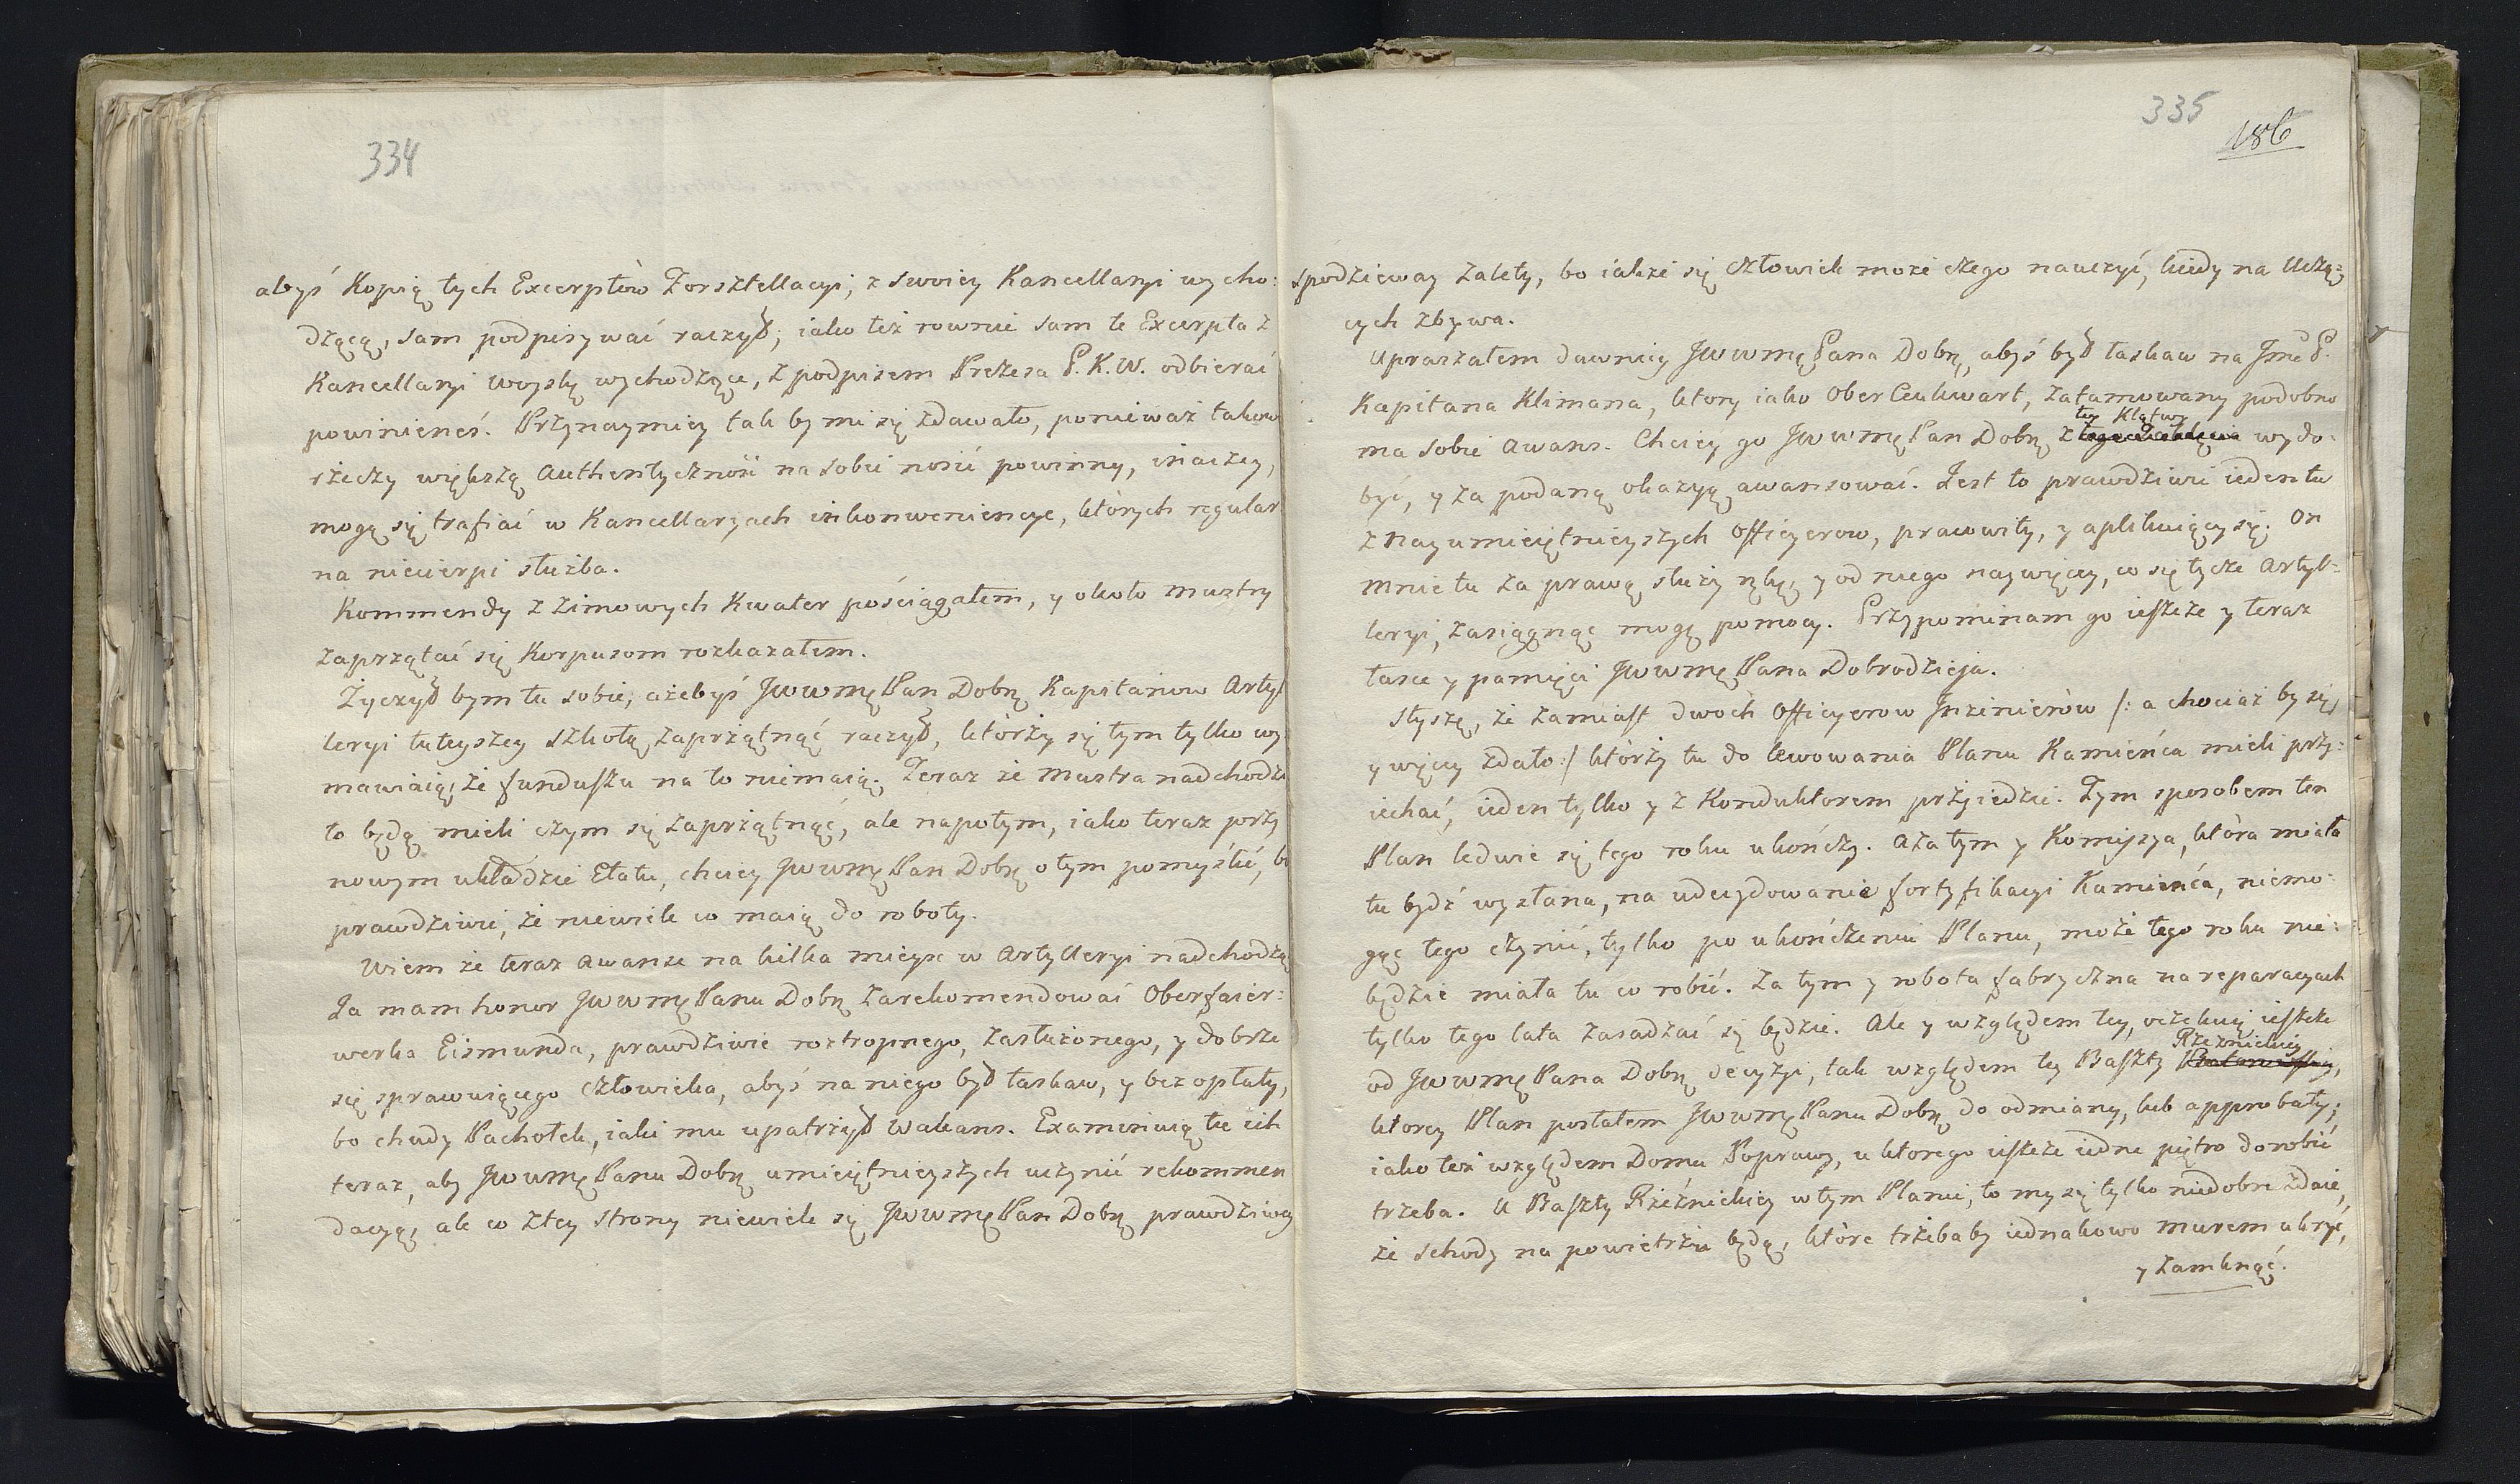 334
abyś Kopią tych Excerptòw Forsztellacyi, z swoiey Kancellaryi wycho:
dzącą, sam podpisywać raczył; iako też rownie sam te Excerpta z
Kancellaryi woysk: wychodzące, z podpisem Prezesa P. K. W. odbierać
powinieneś. Przynaymiey tak by mi się zdawało, ponieważ takow
rzeczy większą Authentyczność na sobie nosić powinny, inaczey,
mogą się trafiać w Kancellaryach inkonweniencye, których regular
na niecierpi służba.
Kommendy z zimowych Kwater pościągałem, y około mustry
zaprzątać się Korpusom rozkazałem.
Życzył bym tu sobie, ażebyś JWWMę Pan Dobrę Kapitanow Artyl
leryi tuteyszey szkołę zaprzątnąć raczył, którży się tym tylko wy
mawiaią, że funduszu na to niemaią. Teraz że Mustra nadchodzi
to będą mieli czym się zaprzątnąć, ale napotym, iako teraz przy
nowym układzie Etatu, chciey JWWMę Pan Dobrę o tym pomyślić, bo
prawdziwie, że niewiele co maią do roboty.
Wiem że teraz Awanse na kilka mieysc w Artylleryi nadchodzą
Ja mam honor JWWMę Panu Dobrę zarekomendować Oberfaier:
werka Eismunda, prawdziwie roztropnego, zasłużonego, y dobrze
się sprawuiącego Człowieka, abyś na niego był łaskaw, y bez opłaty,
bo chudy Pachołek, iaki mu upatrzył Wakans. Examinuią tu ich
teraz, aby JWWMę Panu Dobrę umieiętnieyszych uczynić rekommen
dacyą, ale co z tey strony niewiele się JWWMę Pan Dobrę prawdziwey
335
186
spodzieway zalety, bo iakże się człowiek może czego nauczyć, kiedy na Uczą:
cych zbywa.
Upraszałem dawniey JWWMę Pana Dobrę, abyś był łaskaw na Jmć P.
Kapitana Klimana, ktory iako Ober Ceukwart, zatamowany podobno
ma sobie Awans. Chciey go JWWMę Pan Dobrę z tey Klątwy wydo:
być, y za podaną okazyą awansować. Jest to prawdziwie ieden tu
z nayumieiętnieyszych Officyerow, prawowity, y aplikuiący się. On
mnie tu za prawą służy rękę; y od niego naywięcey, co się tycze Artyl:
leryi, zasiągnąć mogę pomocy. Przypominam go ieszcze y teraz
łasce y pamięci JWWMę Pana Dobrodzieja.
Słyszę, że zamiast dwòch Officyerow Jnżinierów /: a chociaż by się
y więcey zdało :/ którży tu do lewowania Planu Kamieńca mieli przy:
iechać, ieden tylko y z Konduktorem przyiedzie. Tym sposobem ten
Plan ledwie się tego roku ukończy. A za tym y Komissya, która miała
tu bydź wysłana, na udecydowanie fortyfikacyi Kamieńca, niemo:
gąc tego czynić, tylko po ukończeniu Planu, może tego roku nie:
będzie miała tu co robić. Za tym y robota fabryczna na reparacyach
tylko tego lata zasadzać się będzie. Ale y względem tey, oczekuię ieszcze
od JWWMę Pana Dobrę decyzyi, tak względem tey Baszty Rzeznickiey,
ktorey Plan posłałem JWWMę Panu Dobrę do odmiany, lub approbaty;
iako też względem Domu Poprawy, u ktorego ieszcze iedne piętro dorobić
trzeba. U Baszty Rzeźnickiey w tym Planie, to mi się tylko niedobre zdaie,
że schody na powietrzu będą, które trżebaby iednakowo murem ukryć,
y zamknąć.